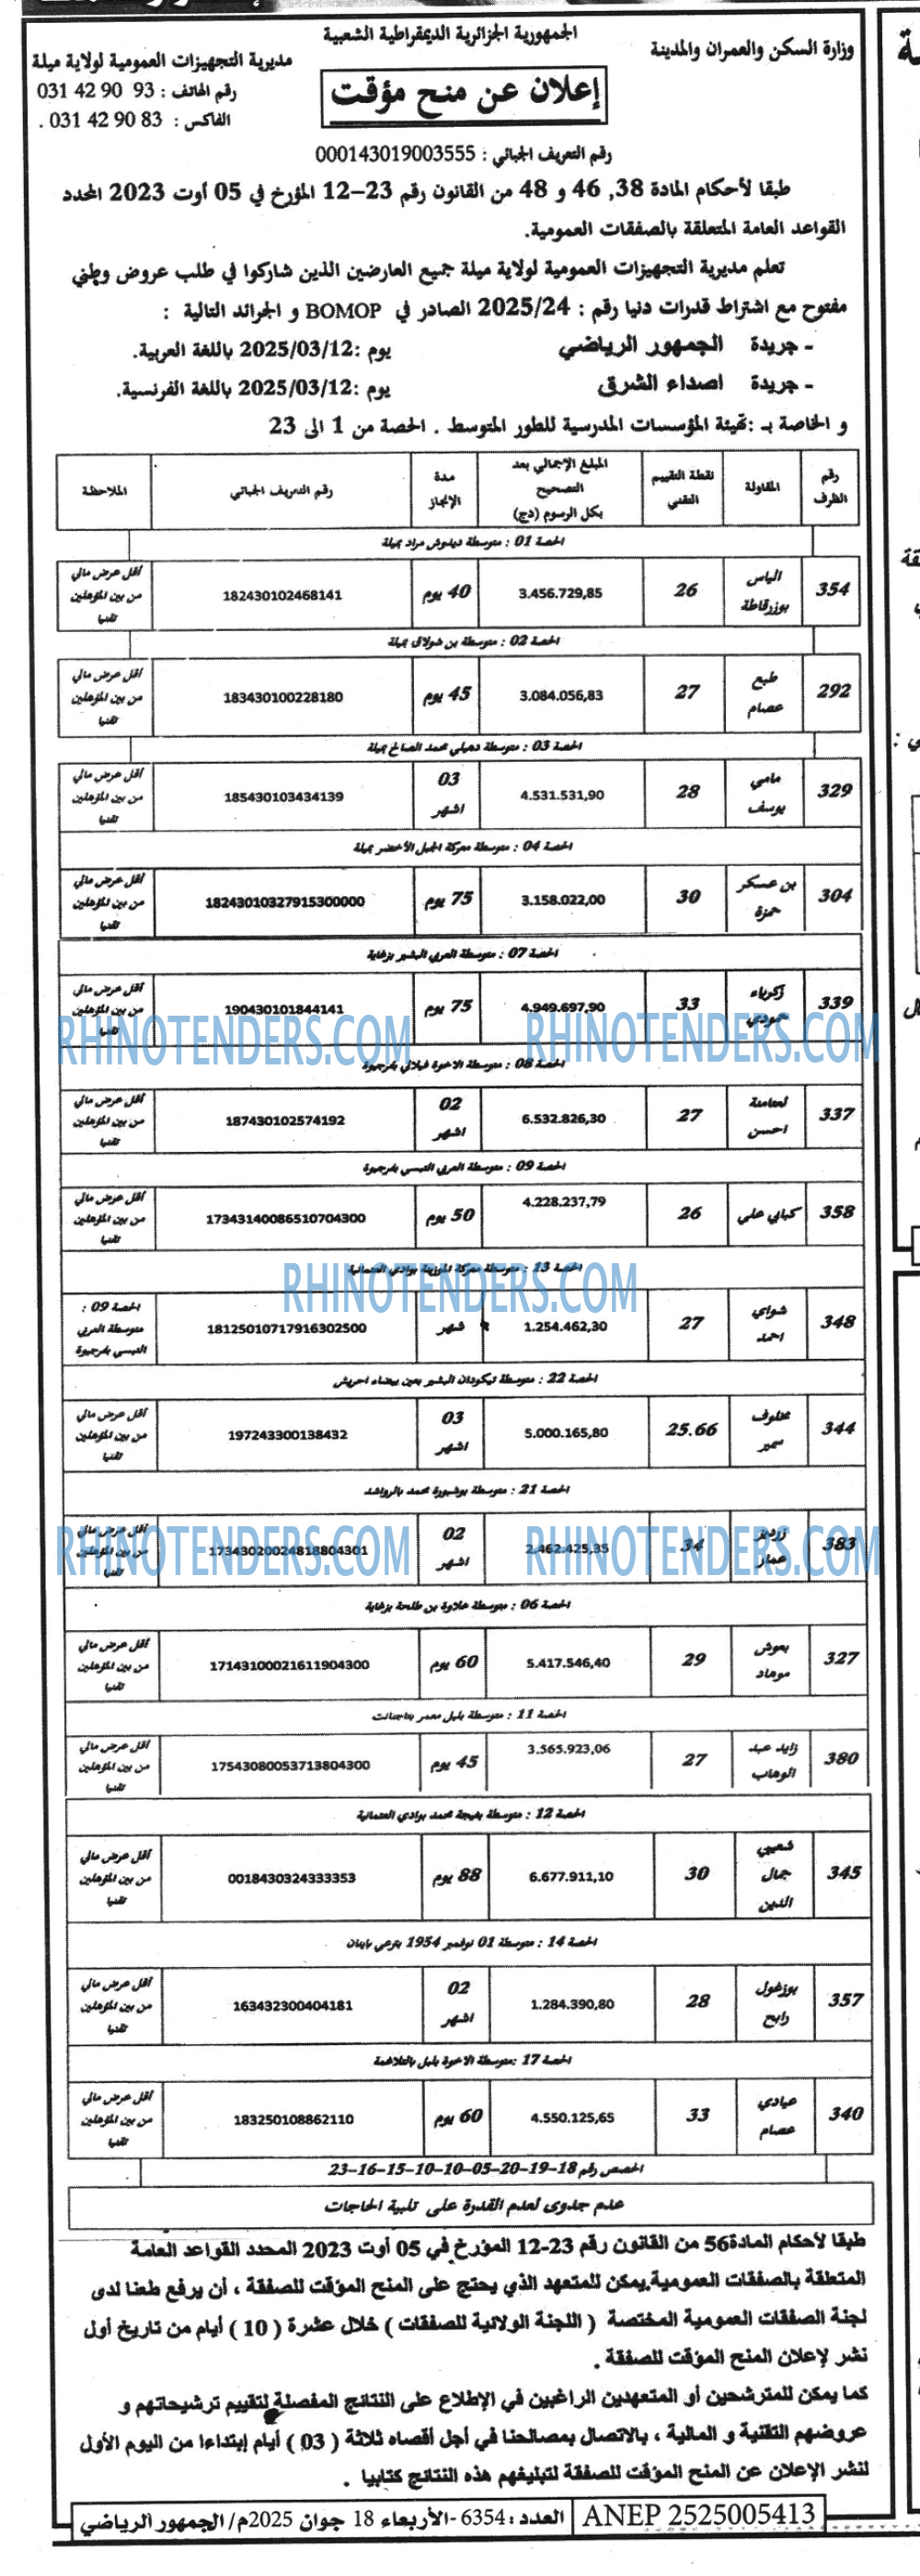 الجمهورية الجزائرية الديمقراطية الشعبية
وزارة السكن والعمران والمدينة
مديرية التجهيزات العمومية لولاية ميلة
رقم الهاتف : 93 90 42 031
الفاكس : 83 90 42 031 .
إعلان عن منح مؤقت
رقم التعريف الجبائي : 000143019003555
طبقا لأحكام المادة 38, 46 و 48 من القانون رقم 23-12 المؤرخ في 05 أوت 2023 المحدد
القواعد العامة المتعلقة بالصفقات العمومية.
تعلم مديرية التجهيزات العمومية لولاية ميلة جميع العارضين الذين شاركوا في طلب عروض وطني
مفتوح مع اشتراط قدرات دنيا رقم : 2025/24 الصادر في BOMOP و الجرائد التالية :
- جريدة الجمهور الرياضي يوم :2025/03/12 باللغة العربية.
- جريدة اصداء الشرق يوم :2025/03/12 باللغة الفرنسية.
و الخاصة بـ :تهيئة المؤسسات المدرسية للطور المتوسط . الحصة من 1 الى 23
رقم الظرف المقاولة نقطة التقييم التقني المبلغ الإجمالي بعد التصحيح بكل الرسوم (دج) مدة الإنجاز رقم التعريف الجبائي الملاحظة
الحصة 01 : متوسطة ديدوش مراد بميلة
354 الياس بوزرقاطة 26 3.456.729,85 40 يوم 182430102468141 أقل عرض مالي من بين المؤهلين تقنيا
الحصة 02 : متوسطة بن شولاق بميلة
292 طبع عصام 27 3.084.056,83 45 يوم 183430100228180 أقل عرض مالي من بين المؤهلين تقنيا
الحصة 03 : متوسطة دهيلي محمد الصالح بميلة
329 مامي يوسف 28 4.531.531,90 03 اشهر 185430103434139 أقل عرض مالي من بين المؤهلين تقنيا
الحصة 04 : متوسطة معركة الجبل الأخضر بميلة
304 بن عسكر حمزة 30 3.158.022,00 75 يوم 18243010327915300000 أقل عرض مالي من بين المؤهلين تقنيا
الحصة 07 : متوسطة العربي البشير بزغاية
339 زكرياء حمودي 33 4.949.697,90 75 يوم 190430101844141 أقل عرض مالي من بين المؤهلين تقنيا
RHINOTENDERS.COM RHINOTENDERS.COM
الحصة 08 : متوسطة الاخوة فيلالي بفرجيوة
337 لعتامنة احسن 27 6.532.826,30 02 اشهر 187430102574192 أقل عرض مالي من بين المؤهلين تقنيا
الحصة 09 : متوسطة العربي التبسي بفرجيوة
358 كباني علي 26 4.228.237,79 50 يوم 17343140086510704300 أقل عرض مالي من بين المؤهلين تقنيا
الحصة 13 : متوسطة معركة بوادي العثمانية
RHINOTENDERS.COM
348 شواي احمد 27 1.254.462,30 شهر 18125010717916302500 الحصة 09 : متوسطة العربي التبسي بفرجيوة
الحصة 22 : متوسطة تيكودان البشير بعين بيضاء احريش
344 مخلوف سمير 25.66 5.000.165,80 03 اشهر 197243300138432 أقل عرض مالي من بين المؤهلين تقنيا
الحصة 21 : متوسطة بوشبورة محمد بالرواشد
383 عمار 34 2.462.425,35 02 اشهر 17343020024818804301 أقل عرض مالي من بين المؤهلين تقنيا
RHINOTENDERS.COM RHINOTENDERS.COM
الحصة 06 : متوسطة علاوة بن طلحة بزغاية
327 بعوش موهاد 29 5.417.546,40 60 يوم 17143100021611904300 أقل عرض مالي من بين المؤهلين تقنيا
الحصة 11 : متوسطة بلبل معمر بتاجنانت
380 زايد عبد الوهاب 27 3.565.923,06 45 يوم 17543080053713804300 أقل عرض مالي من بين المؤهلين تقنيا
الحصة 12 : متوسطة محمد بوادي العثمانية
345 شعيبي جمال الدين 30 6.677.911,10 88 يوم 0018430324333353 أقل عرض مالي من بين المؤهلين تقنيا
الحصة 14 : متوسطة 01 نوفمبر 1954 بترعي باينان
357 بوزغول رابح 28 1.284.390,80 02 اشهر 163432300404181 أقل عرض مالي من بين المؤهلين تقنيا
الحصة 17 :متوسطة الاخوة بلبل بالتلاغمة
340 عيادي عصام 33 4.550.125,65 60 يوم 183250108862110 أقل عرض مالي من بين المؤهلين تقنيا
الحصص رقم 18-19-20-05-10-10-15-16-23
عدم جدوى لعدم القدرة على تلبية الحاجات
طبقا لأحكام المادة56 من القانون رقم 23-12 المؤرخ في 05 أوت 2023 المحدد القواعد العامة
المتعلقة بالصفقات العمومية.يمكن للمتعهد الذي يحتج على المنح المؤقت للصفقة ، أن يرفع طعنا لدى
لجنة الصفقات العمومية المختصة ( اللجنة الولائية للصفقات ) خلال عشرة ( 10 ) أيام من تاريخ أول
نشر لإعلان المنح المؤقت للصفقة .
كما يمكن للمترشحين أو المتعهدين الراغبين في الإطلاع على النتائج المفصلة لتقييم ترشيحاتهم و
عروضهم التقنية و المالية ، بالاتصال بمصالحنا في أجل أقصاه ثلاثة ( 03 ) أيام إبتداءا من اليوم الأول
لنشر الإعلان عن المنح المؤقت للصفقة لتبليغهم هذه النتائج كتابيا .
ANEP 2525005413 العدد : 6354 -الأربعاء 18 جوان 2025م/ الجمهور الرياضي